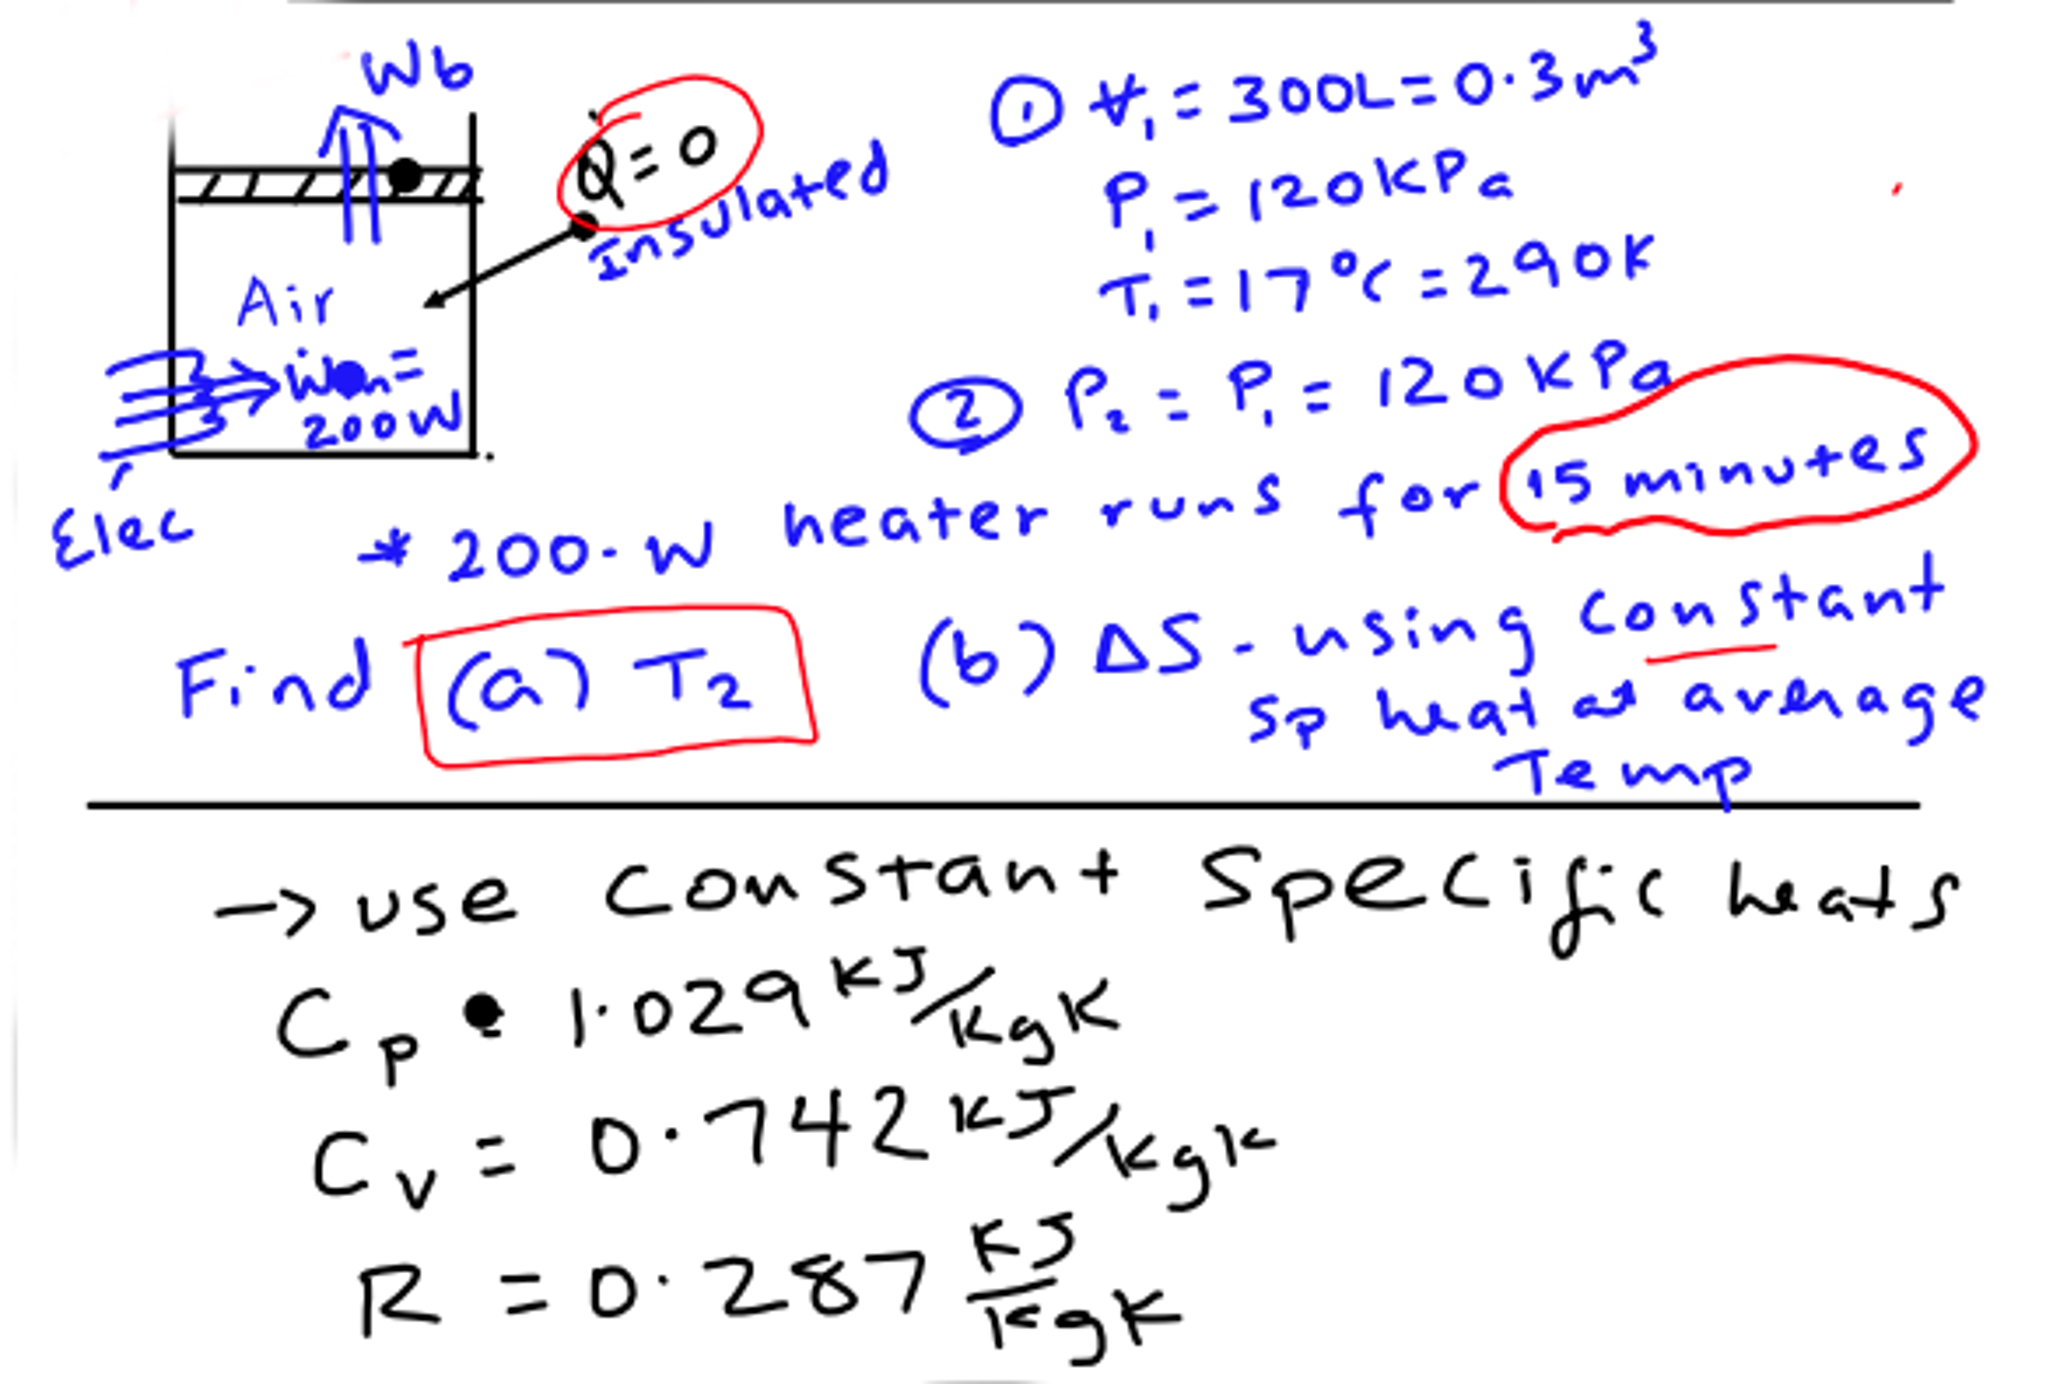 Wb
Q̇ = 0
Insulated
Air
Ẇin =
200W
Elec
① V₁ = 300L = 0.3m³
P₁ = 120KPa
T₁ = 17°C = 290K
② P₂ = P₁ = 120KPa
* 200-W heater runs for 15 minutes
Find (a) T₂ (b) ΔS - using constant
Sp heat at average
Temp
-> use Constant Specific heats
Cp = 1.029 KJ/KgK
Cv = 0.742 KJ/KgK
R = 0.287 KJ/KgK